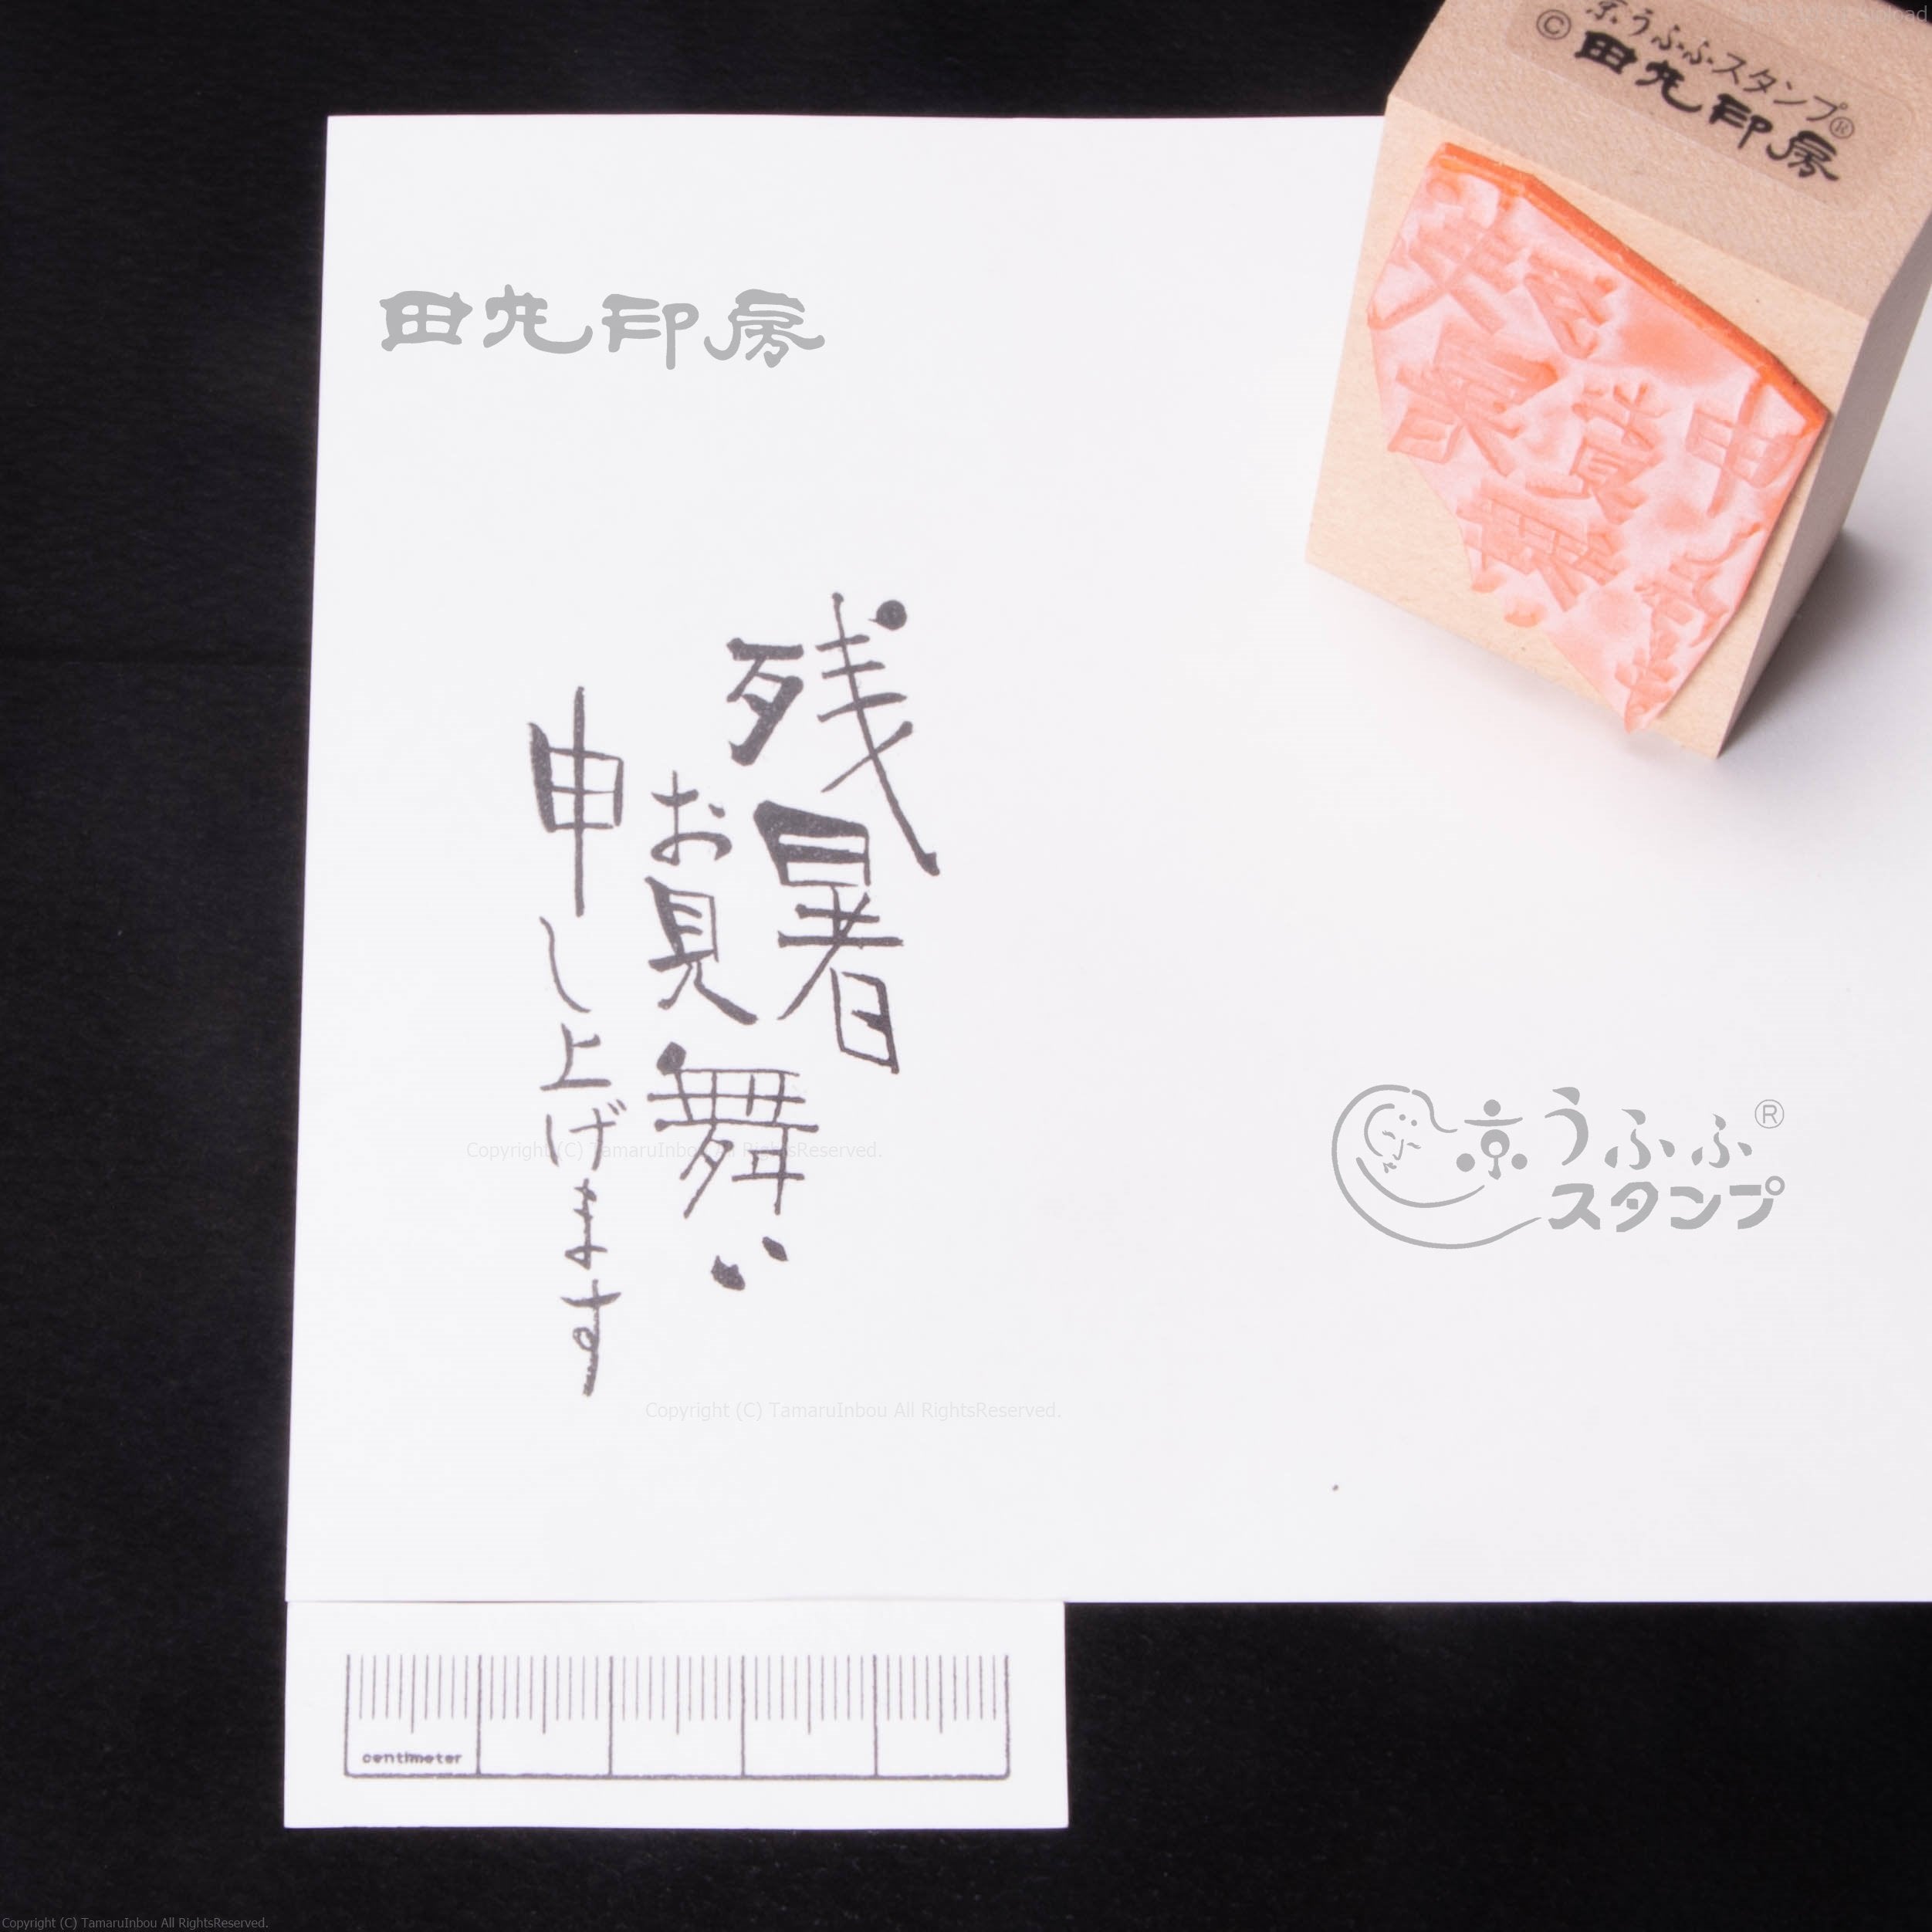 京うふふスタンプ®
© 田丸印房
田丸印房
残暑
お見舞い
申し上げます
京うふふ®
スタンプ
Copyright (C) TamaruInbou All RightsReserved.
Copyright (C) TamaruInbou All RightsReserved.
centimeter
Copyright (C) TamaruInbou All RightsReserved.